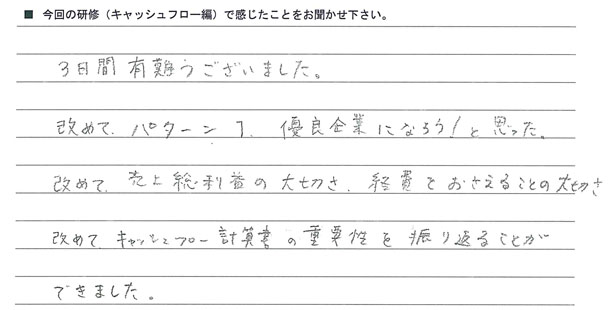 ■ 今回の研修（キャッシュフロー編）で感じたことをお聞かせ下さい。
3日間 有難うございました。
改めて、パターン1、優良企業になろう！と思った。
改めて、売上総利益の大切さ、経費をおさえることの大切さ
改めて、キャッシュフロー計算書の重要性を振り返ることが
できました。